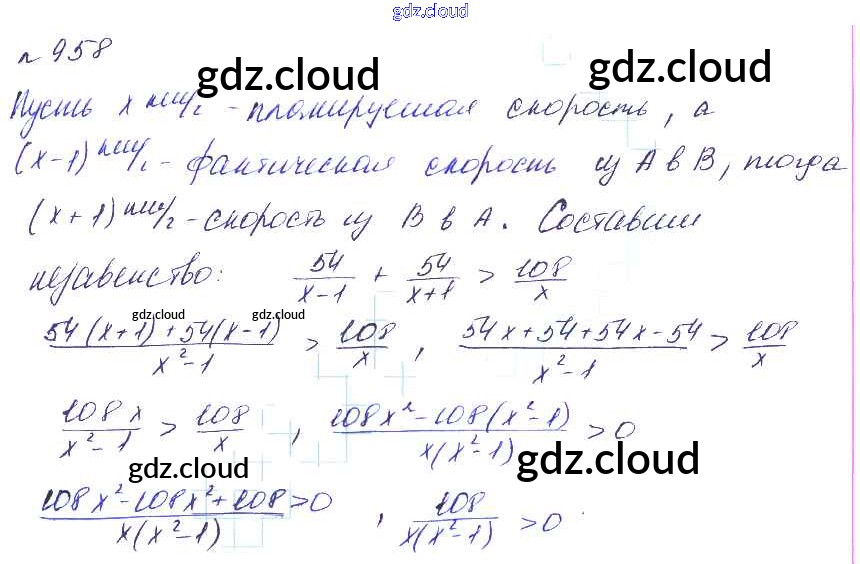 gdz.cloud
n 958
gdz.cloud gdz.cloud
Пусть x км/ч - планируемая скорость, а
(x-1) км/ч - фактическая скорость из A в B, тогда
(x+1) км/ч - скорость из B в A. Составим
неравенство: 54/(x-1) + 54/(x+1) > 108/x
gdz.cloud gdz.cloud
(54(x+1)+54(x-1))/(x²-1) > 108/x , (54x+54+54x-54)/(x²-1) > 108/x
108x/(x²-1) > 108/x , (108x²-108(x²-1))/(x(x²-1)) > 0
gdz.cloud gdz.cloud
(108x²-108x²+108)/(x(x²-1)) > 0 , 108/(x(x²-1)) > 0